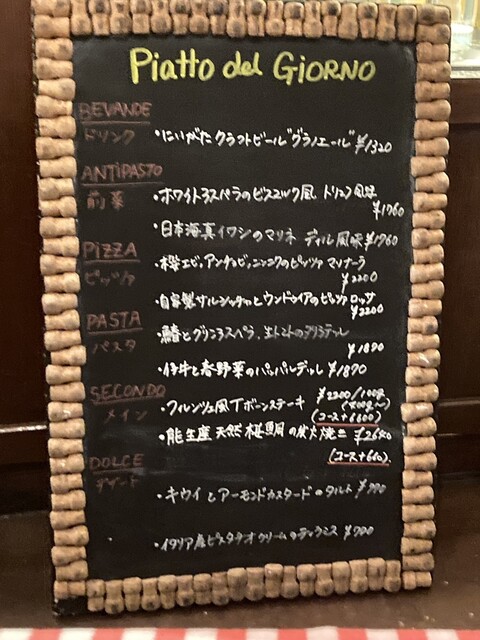 Piatto del GIORNO
BEVANDE
ドリンク
・にいがたクラフトビール"グラノエール" ¥1320
ANTiPASTO
前菜
・ホワイトアスパラのビスマルク風 トリュフ風味
¥1760
・日本海真イワシのマリネ ディル風味 ¥1760
PiZZA
ピッツァ
・桜エビ、アンチョビ、ニンニクのピッツァ マリナーラ
¥2200
・自家製サルシッチャとウンドゥイアのピッツァ ロッサ
¥2200
PASTA
パスタ
・鰆とグリーンアスパラ、生トマトの
¥1890
・仔牛と春野菜のパッパルデッレ ¥1870
SECONDO
メイン
・フィレンツェ風Tボーンステーキ ¥2200/100g
(コース+1600)
・能生産 天然桜鯛の炭火焼き ¥2650
(コース+660)
DOLCE
デザート
・キウイとアーモンドカスタードのタルト ¥770
・イタリア産ピスタチオクリームのティラミス ¥790